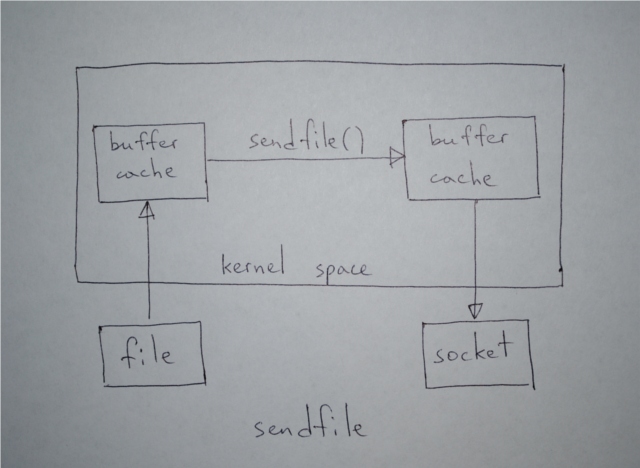 buffer
cache
sendfile()
buffer
cache
kernel space
file
socket
sendfile